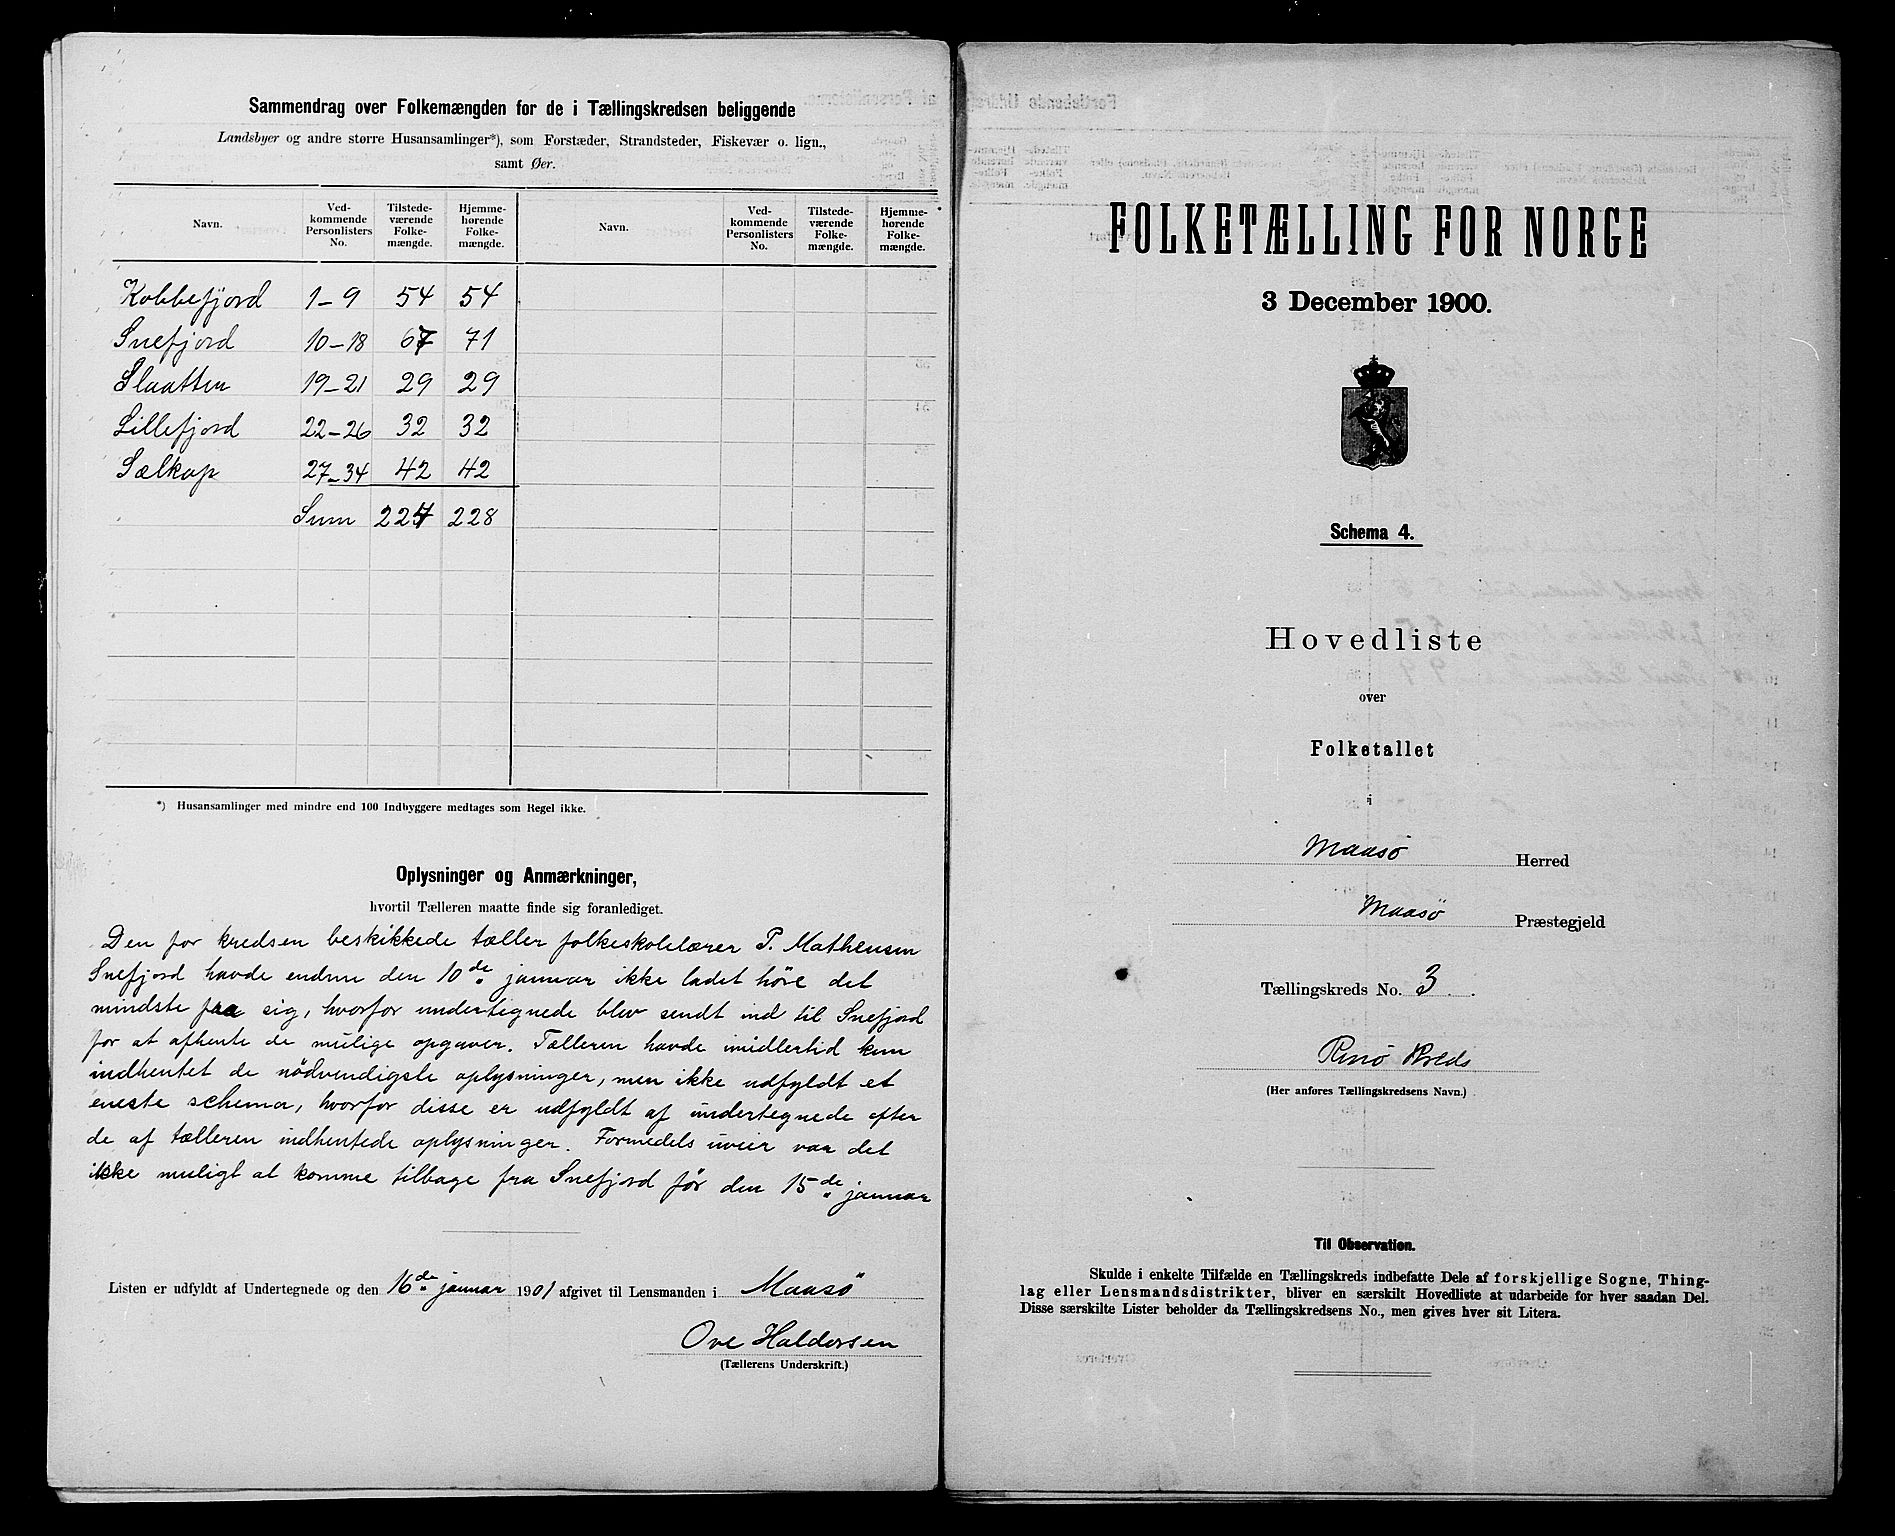 Sammendrag over Folkemængden for de i Tællingskredsen beliggende
Landsbyer og andre større Husansamlinger*), som Forstæder, Strandsteder, Fiskevær o. lign.,
samt Øer.
Navn. Ved-kommende Personlisters No. Tilstede-værende Folke-mængde. Hjemme-hørende Folke-mængde. Navn. Ved-kommende Personlisters No. Tilstede-værende Folke-mængde. Hjemme-hørende Folke-mængde.
Kobbefjord 1-9 54 54
Snefjord 10-18 67 71
Slaatten 19-21 29 29
Lillefjord 22-26 32 32
Sælkop 27-34 42 42
Sum 224 228
*) Husansamlinger med mindre end 100 Indbyggere medtages som Regel ikke.
Oplysninger og Anmærkninger,
hvortil Tælleren maatte finde sig foranlediget.
Den for kredsen beskikkede tæller folkeskolelærer P. Mathensen
Snefjord havde endnu den 10de januar ikke ladet høre det
mindste fra sig, hvorfor undertegnede blev sendt ind til Snefjord
for at afhente de mulige opgaver. Tælleren havde imidlertid kun
indhentet de nödvendigste oplysninger, men ikke udfyldt et
eneste schema, hvorfor disse er udfyldt af undertegnede efter
de af tælleren indhentede oplysninger. Formedels uveir var det
ikke muligt at komme tilbage fra Snefjord før den 15de januar
Listen er udfyldt af Undertegnede og den 16de januar 1901 afgivet til Lensmanden i Maasö
Ove Haldorsen
(Tællerens Underskrift.)
FOLKETÆLLING FOR NORGE
3 December 1900.
Schema 4.
Hovedliste
over
Folketallet
i
Maasö Herred
Maasö Præstegjeld
Tællingskreds No. 3
Kreds
(Her anføres Tællingskredsens Navn.)
Til Observation.
Skulde i enkelte Tilfælde en Tællingskreds indbefatte Dele af forskjellige Sogne, Thing-
lag eller Lensmandsdistrikter, bliver en særskilt Hovedliste at udarbeide for hver saadan Del.
Disse særskilte Lister beholder da Tællingskredsens No., men gives hver sit Litera.